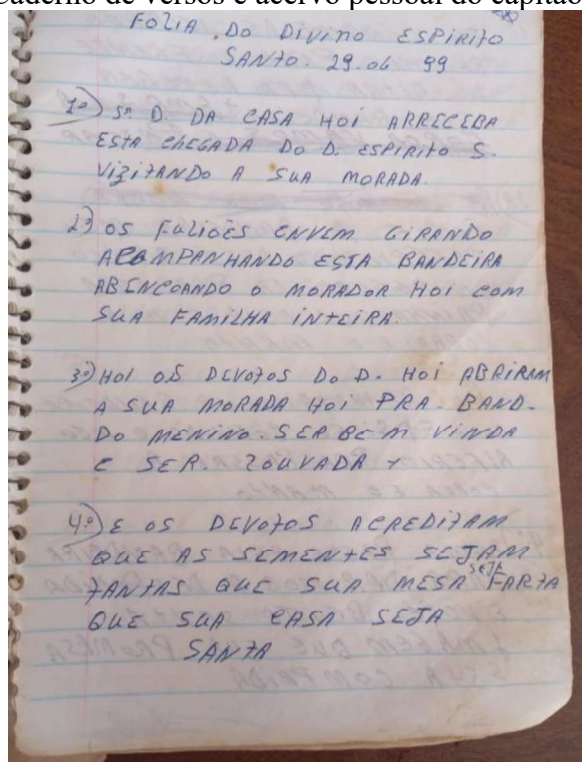 Caderno de versos e acervo pessoal do capitão
FOLIA DO DIVINO ESPIRITO
SANTO. 29.06 99
1º) Sr. D. DA CASA HOI ARRECEBA
ESTA CHEGADA DO D. ESPIRITO S.
VIZITANDO A SUA MORADA.
2º) OS FULIÕES ENVEM GIRANDO
ACOMPANHANDO ESTA BANDEIRA
ABENCOANDO O MORADOR HOI COM
SUA FAMILHA INTEIRA.
3º) HOI OS DEVOTOS DO D. HOI ABRIRAM
A SUA MORADA HOI PRA. BAND.
DO MENINO. SER BEM VINDA
E SER. LOUVADA +
4º) E OS DEVOTOS ACREDITAM
QUE AS SEMENTES SEJAM
TANTAS QUE SUA MESA SEJA FARTA
QUE SUA CASA SEJA
SANTA